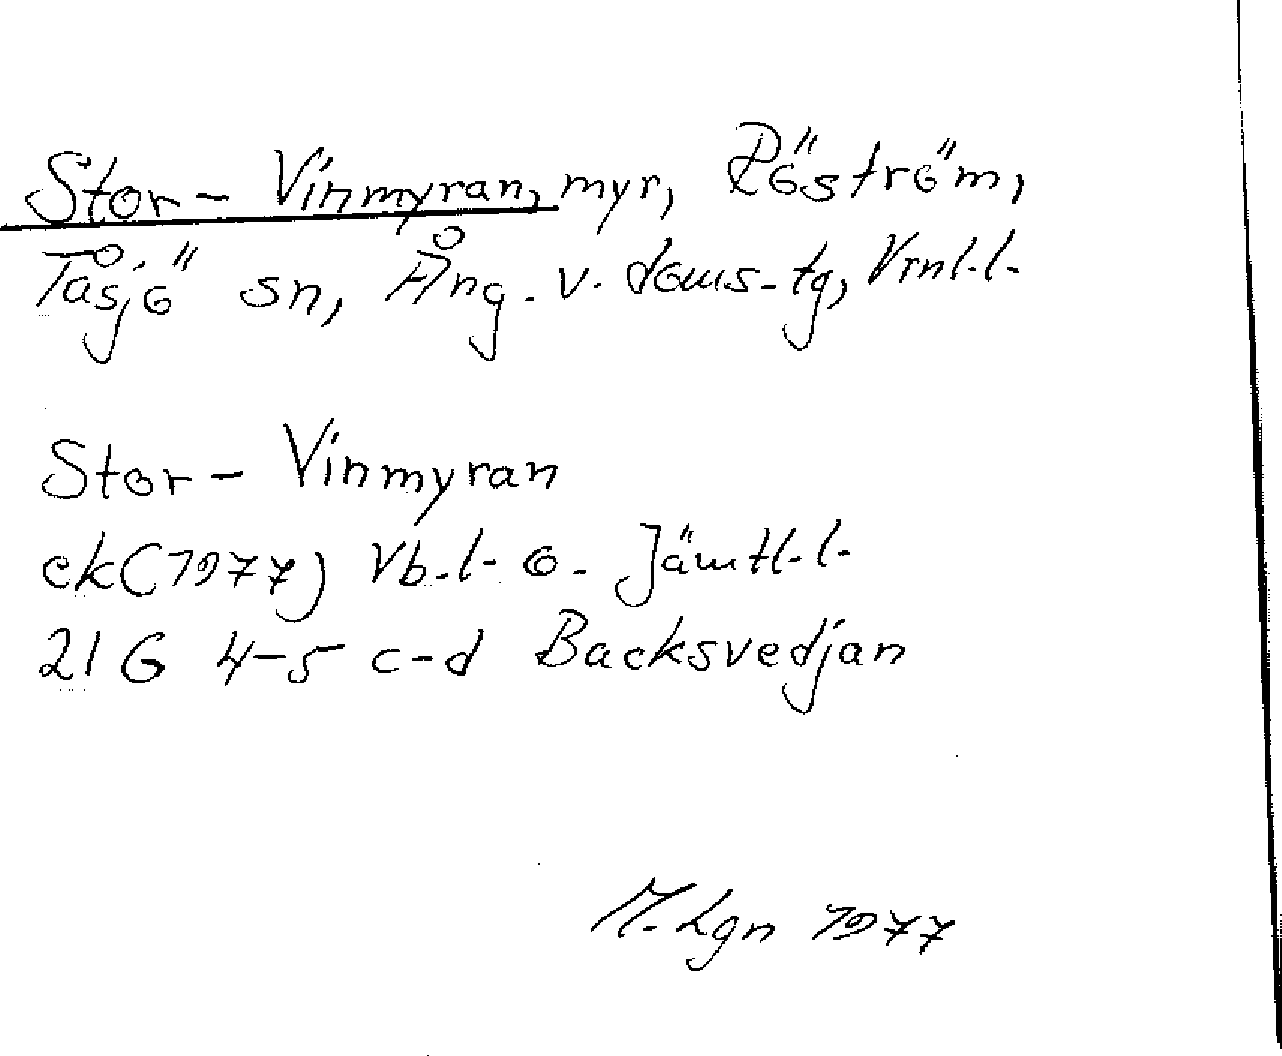 Stor-Vinmyran, myr, Röström,
Tåsjö sn, Ång. v. doms-tg, Vrnl.l.
Stor-Vinmyran
ek(1977) Vb.l. o. Jämtl.l.
21 G 4-5 c-d Backsvedjan
M. Lgn 1977